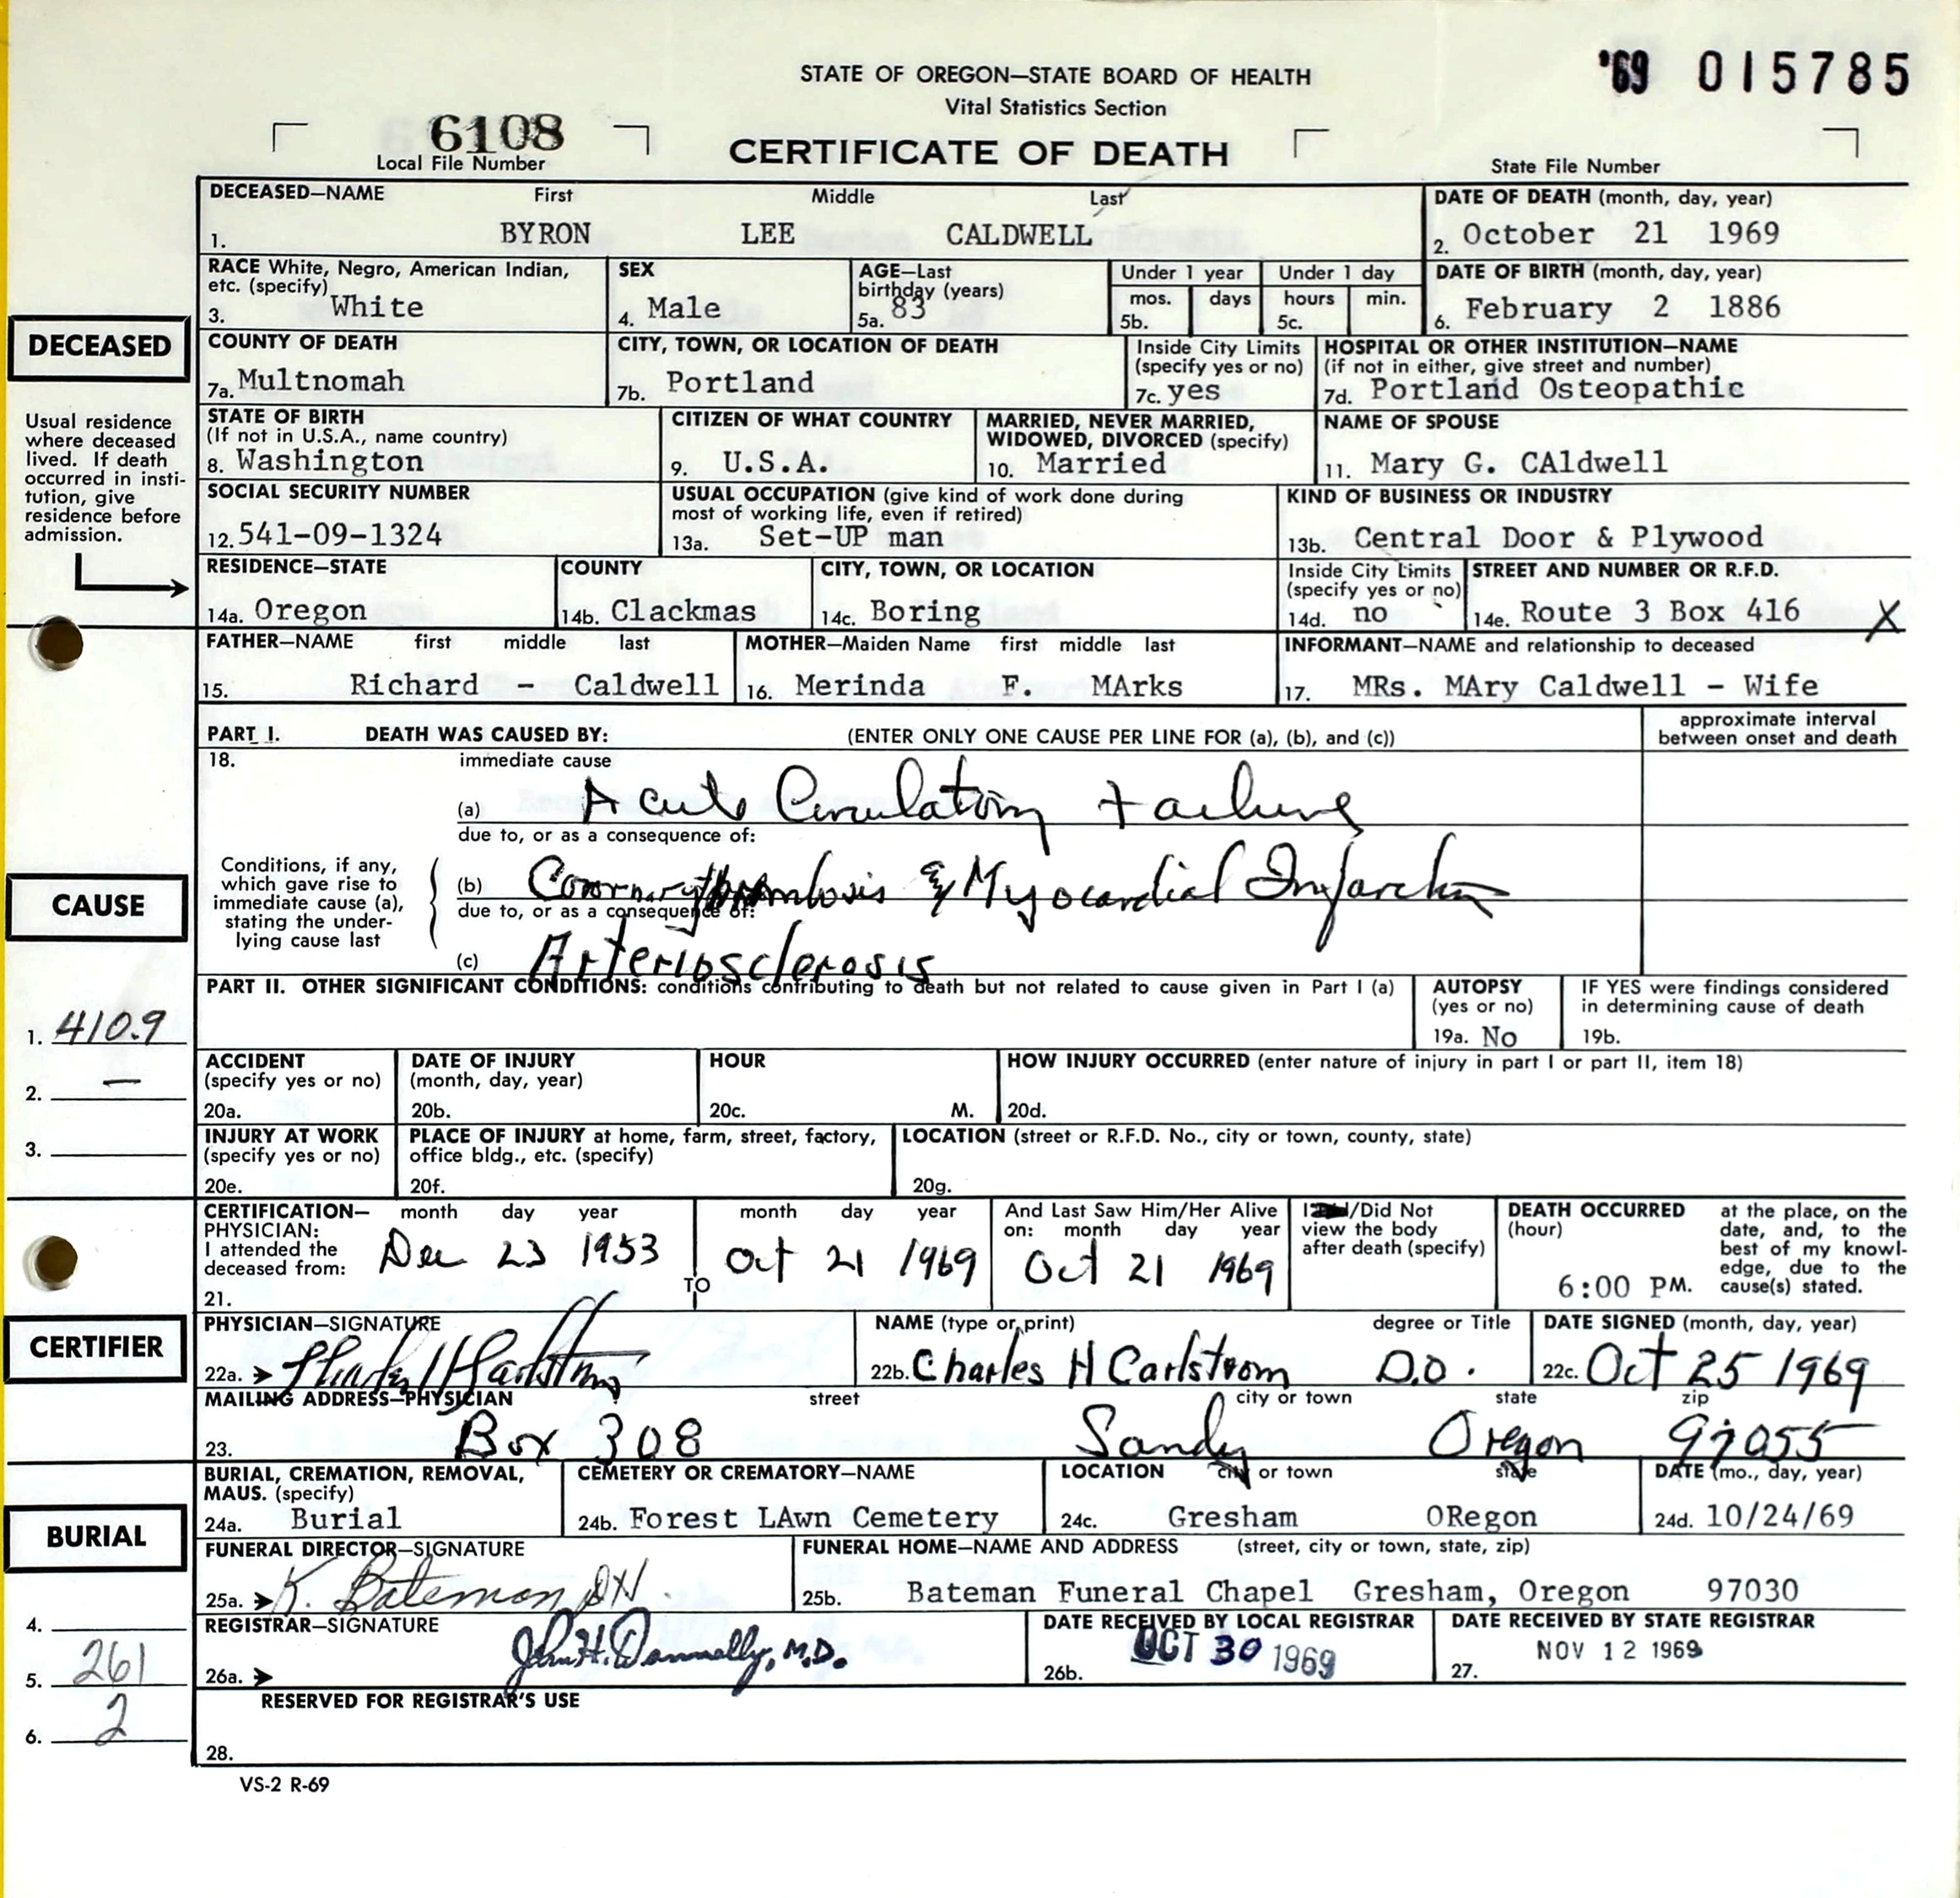 STATE OF OREGON—STATE BOARD OF HEALTH
'69 015785
Vital Statistics Section
6108
Local File Number
CERTIFICATE OF DEATH
State File Number
DECEASED—NAME First Middle Last
DATE OF DEATH (month, day, year)
1. BYRON LEE CALDWELL
2. October 21 1969
RACE White, Negro, American Indian, etc. (specify)
3. White
SEX
4. Male
AGE—Last birthday (years)
5a. 83
Under 1 year
mos. days
5b.
Under 1 day
hours min.
5c.
DATE OF BIRTH (month, day, year)
6. February 2 1886
DECEASED
COUNTY OF DEATH
7a. Multnomah
CITY, TOWN, OR LOCATION OF DEATH
7b. Portland
Inside City Limits
(specify yes or no)
7c. yes
HOSPITAL OR OTHER INSTITUTION—NAME
(if not in either, give street and number)
7d. Portland Osteopathic
Usual residence
where deceased
lived. If death
occurred in insti-
tution, give
residence before
admission.
STATE OF BIRTH
(If not in U.S.A., name country)
8. Washington
CITIZEN OF WHAT COUNTRY
9. U.S.A.
MARRIED, NEVER MARRIED,
WIDOWED, DIVORCED (specify)
10. Married
NAME OF SPOUSE
11. Mary G. CAldwell
SOCIAL SECURITY NUMBER
12. 541-09-1324
USUAL OCCUPATION (give kind of work done during
most of working life, even if retired)
13a. Set-UP man
KIND OF BUSINESS OR INDUSTRY
13b. Central Door & Plywood
RESIDENCE—STATE
14a. Oregon
COUNTY
14b. Clackmas
CITY, TOWN, OR LOCATION
14c. Boring
Inside City Limits
(specify yes or no)
14d. no
STREET AND NUMBER OR R.F.D.
14e. Route 3 Box 416 X
FATHER—NAME first middle last
15. Richard - Caldwell
MOTHER—Maiden Name first middle last
16. Merinda F. MArks
INFORMANT—NAME and relationship to deceased
17. MRs. MAry Caldwell - Wife
PART I. DEATH WAS CAUSED BY: (ENTER ONLY ONE CAUSE PER LINE FOR (a), (b), and (c))
approximate interval
between onset and death
18. immediate cause
(a) Acute Circulatory Failure
due to, or as a consequence of:
CAUSE
Conditions, if any,
which gave rise to
immediate cause (a),
stating the under-
lying cause last
(b) Coronary thrombosis & Myocardial Infarction
due to, or as a consequence of:
(c) Arteriosclerosis
PART II. OTHER SIGNIFICANT CONDITIONS: conditions contributing to death but not related to cause given in Part I (a)
AUTOPSY
(yes or no)
19a. No
IF YES were findings considered
in determining cause of death
19b.
1. 410.9
2. —
3.
ACCIDENT
(specify yes or no)
20a.
DATE OF INJURY
(month, day, year)
20b.
HOUR
20c. M.
HOW INJURY OCCURRED (enter nature of injury in part I or part II, item 18)
20d.
INJURY AT WORK
(specify yes or no)
20e.
PLACE OF INJURY at home, farm, street, factory,
office bldg., etc. (specify)
20f.
LOCATION (street or R.F.D. No., city or town, county, state)
20g.
CERTIFICATION—
PHYSICIAN:
I attended the
deceased from:
21.
month day year
Dec 23 1953
TO
month day year
Oct 21 1969
And Last Saw Him/Her Alive
on: month day year
Oct 21 1969
I /Did Not
view the body
after death (specify)
DEATH OCCURRED
(hour)
6:00 PM.
at the place, on the
date, and, to the
best of my knowl-
edge, due to the
cause(s) stated.
CERTIFIER
PHYSICIAN—SIGNATURE
22a. Charles H Carlstrom
NAME (type or print) degree or Title
22b. Charles H Carlstrom D.O.
DATE SIGNED (month, day, year)
22c. Oct 25 1969
MAILING ADDRESS—PHYSICIAN street city or town state zip
23. Box 308 Sandy Oregon 97055
BURIAL
BURIAL, CREMATION, REMOVAL,
MAUS. (specify)
24a. Burial
CEMETERY OR CREMATORY—NAME
24b. Forest LAwn Cemetery
LOCATION city or town state
24c. Gresham ORegon
DATE (mo., day, year)
24d. 10/24/69
FUNERAL DIRECTOR—SIGNATURE
25a. K. Bateman
FUNERAL HOME—NAME AND ADDRESS (street, city or town, state, zip)
25b. Bateman Funeral Chapel Gresham, Oregon 97030
4.
5. 261
6. 2
REGISTRAR—SIGNATURE
26a. John H. Donnelly, M.D.
DATE RECEIVED BY LOCAL REGISTRAR
26b. OCT 30 1969
DATE RECEIVED BY STATE REGISTRAR
27. NOV 12 1969
RESERVED FOR REGISTRAR'S USE
28.
VS-2 R-69